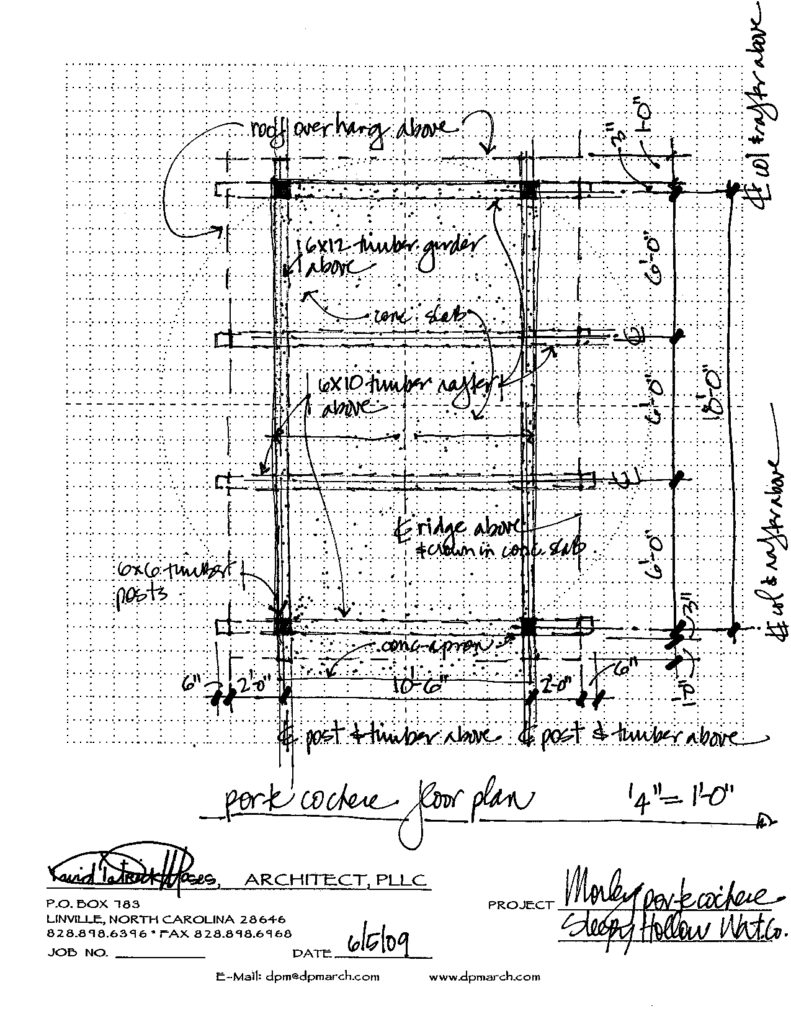 roof overhang above
3"
1'-0"
℄ col & rafter above
6x12 timber girder
above
6'-0"
conc slab
℄
6x10 timber rafter
above
6'-0"
18'-0"
℄
℄ ridge above
& crown in conc slab
6'-0"
℄ col & rafter above
6x6 timber
posts
3"
conc apron
6"
2'-0"
10'-6"
2'-0"
6"
1'-0"
℄ post & timber above
℄ post & timber above
porte cochere floor plan
1/4" = 1'-0"
David Patrick Moses, ARCHITECT, PLLC
P.O. BOX 783
LINVILLE, NORTH CAROLINA 28646
828.898.6396 * FAX 828.898.6968
JOB NO.
DATE 6/5/09
PROJECT Morley porte cochere
Sleepy Hollow Wat. Co.
E-Mail: dpm@dpmarch.com
www.dpmarch.com